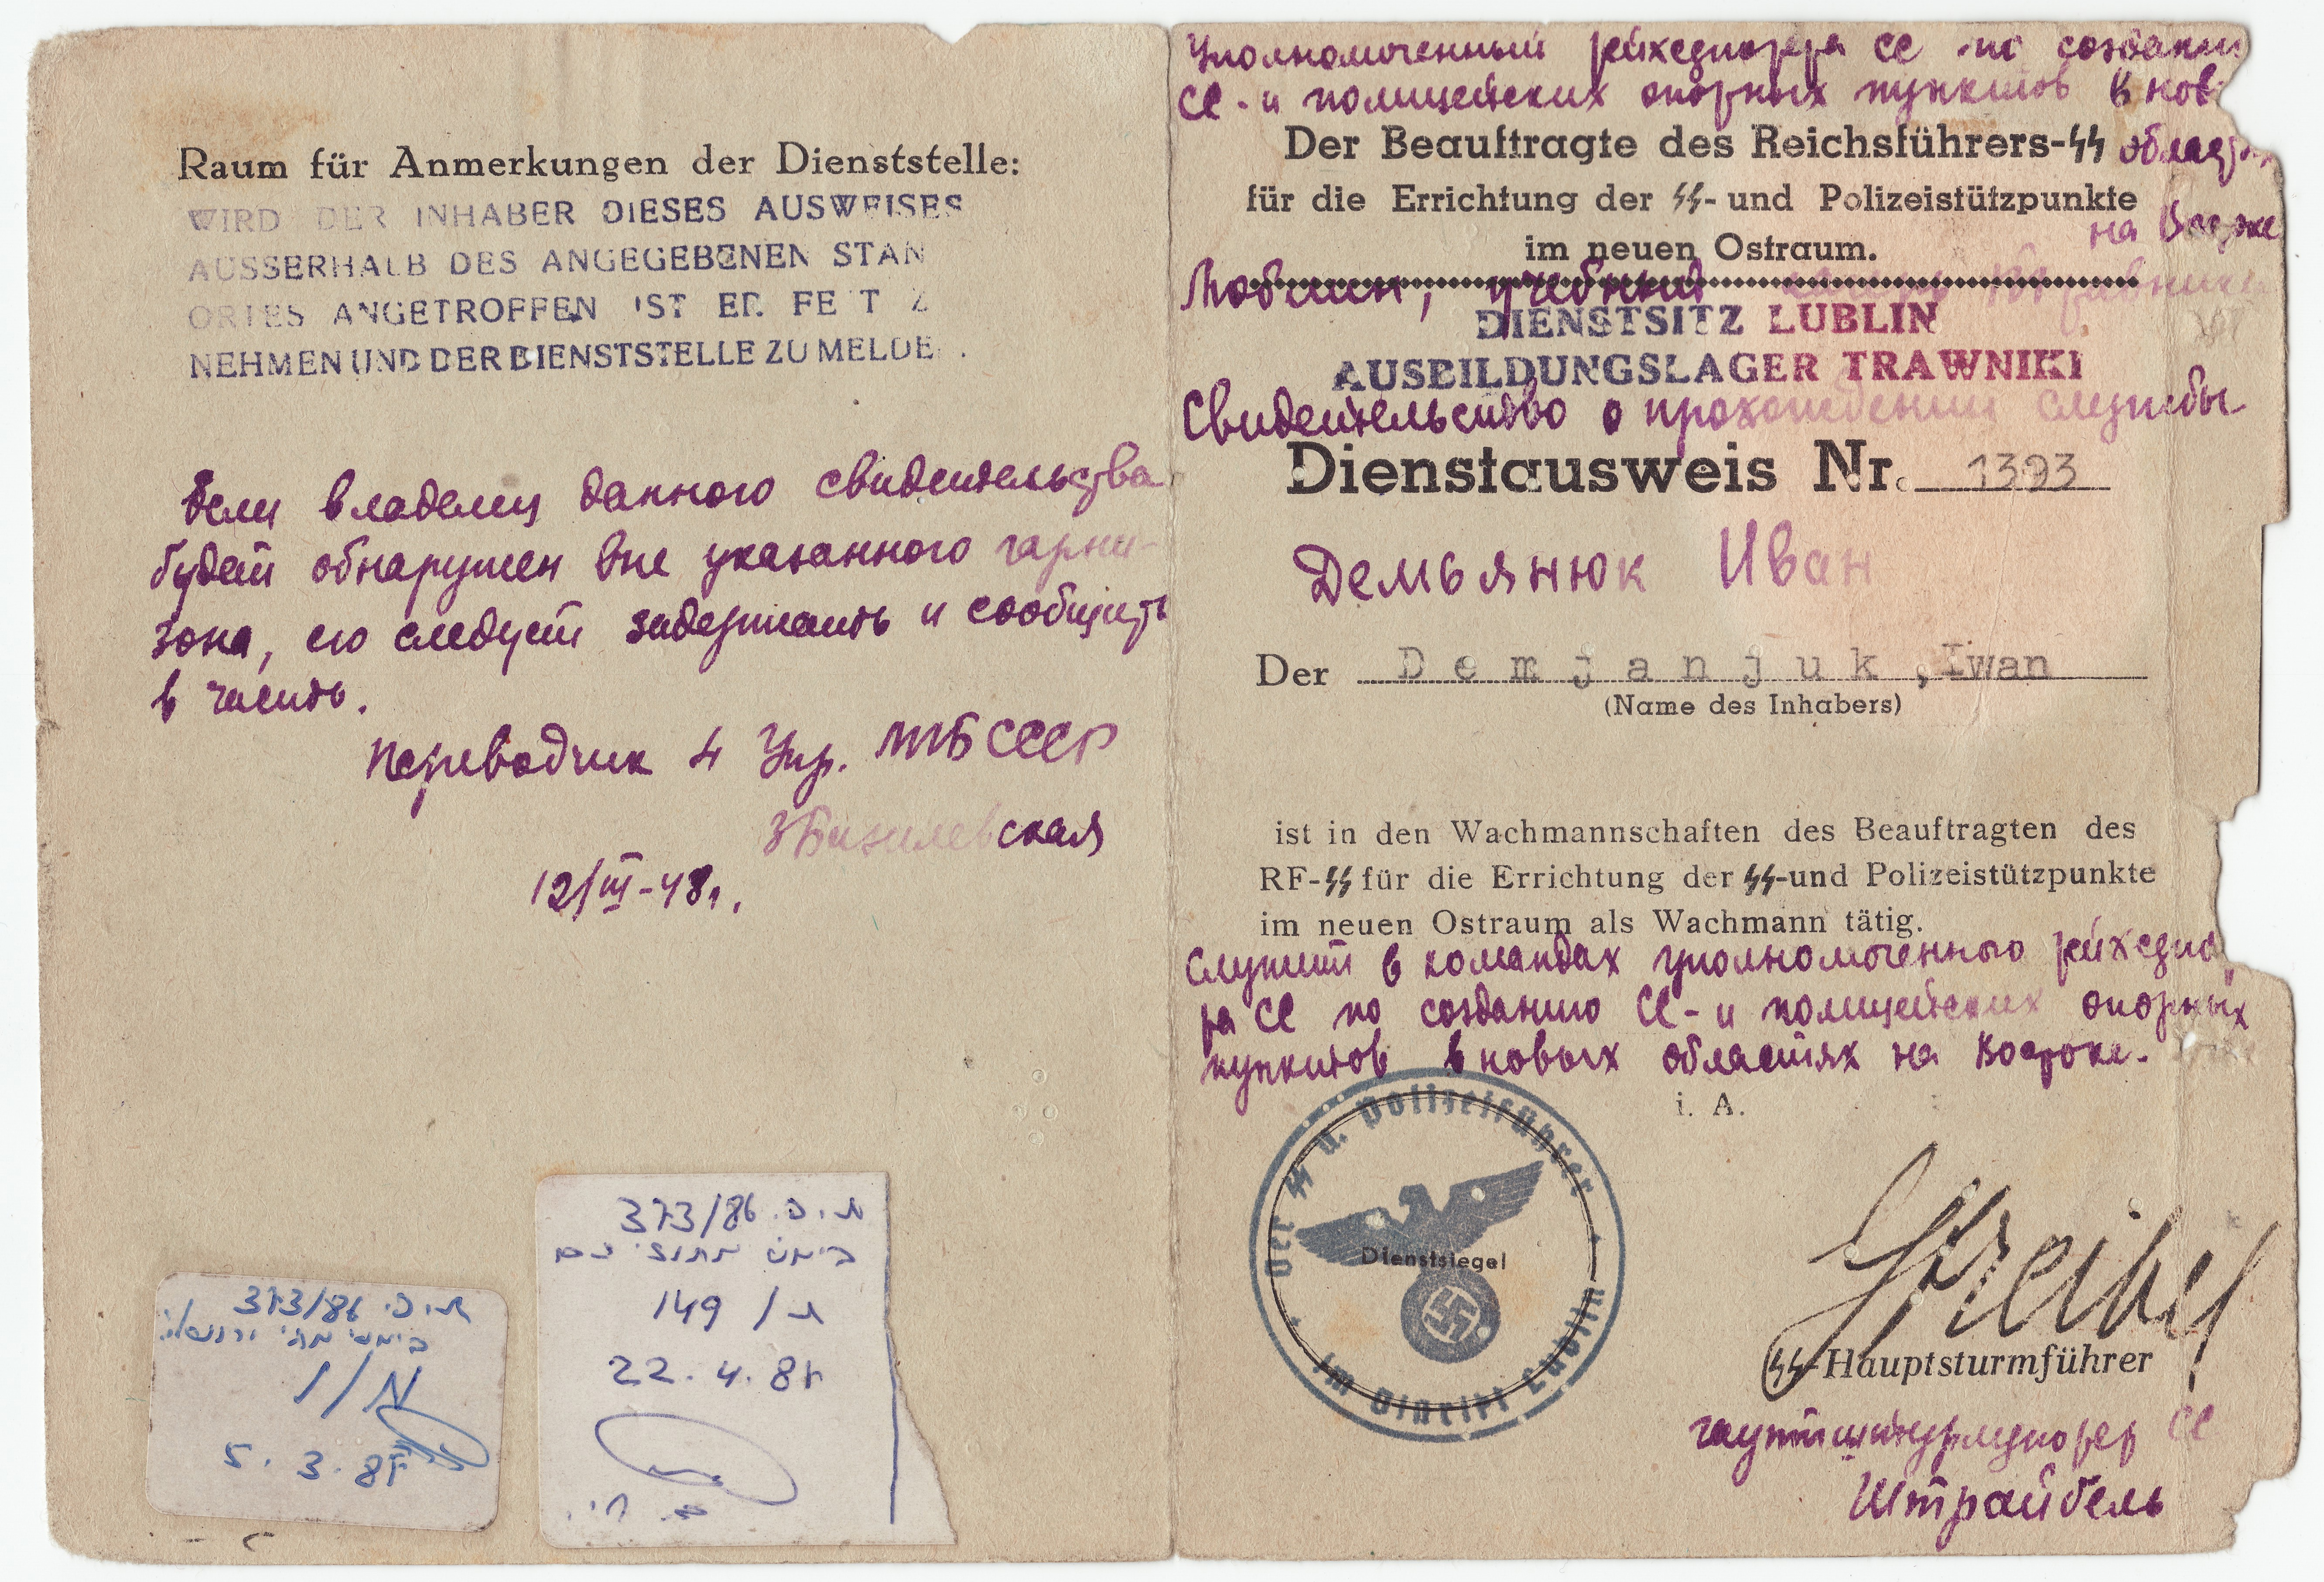 Raum für Anmerkungen der Dienststelle:
WIRD DER INHABER DIESES AUSWEISES
AUSSERHALB DES ANGEGEBENEN STAN
ORTES ANGETROFFEN IST ER FE T Z
NEHMEN UND DER DIENSTSTELLE ZU MELDE .
Если владелец данного свидетельства
будет обнаружен вне указанного гарни-
зона, его следует задержать и сообщить
в часть.
Переводчик 4 Упр. МГБ СССР
ЗБазилевская
12/III-48г.
ת.פ. 373/86
בימ"ש מחוזי י-ם
ת/ 149
22.4.87
ת.פ. 373/86
א/1
5.3.87
Уполномоченный рейхсфюрера СС по создани
СС- и полицейских опорных пунктов в нов
Der Beauftragte des Reichsführers-SS областях
für die Errichtung der SS- und Polizeistützpunkte
на Востоке
im neuen Ostraum.
Люблин, учебный лагерь Травники
DIENSTSITZ LUBLIN
AUSBILDUNGSLAGER TRAWNIKI
Свидетельство о прохождении службы
Dienstausweis Nr. 1393
Демьянюк Иван
Der Demjanjuk, Iwan
(Name des Inhabers)
ist in den Wachmannschaften des Beauftragten des
RF-SS für die Errichtung der SS-und Polizeistützpunkte
im neuen Ostraum als Wachmann tätig.
Служит в командах уполномоченного рейхсфю
ра СС по созданию СС- и полицейских опорных
пунктов в новых областях на Востоке.
i. A.
Der SS u. Polizeiführer
im Distrikt Lublin
Dienstsiegel
Streibel
SS-Hauptsturmführer
гауптштурмфюрер СС
Штрайбель